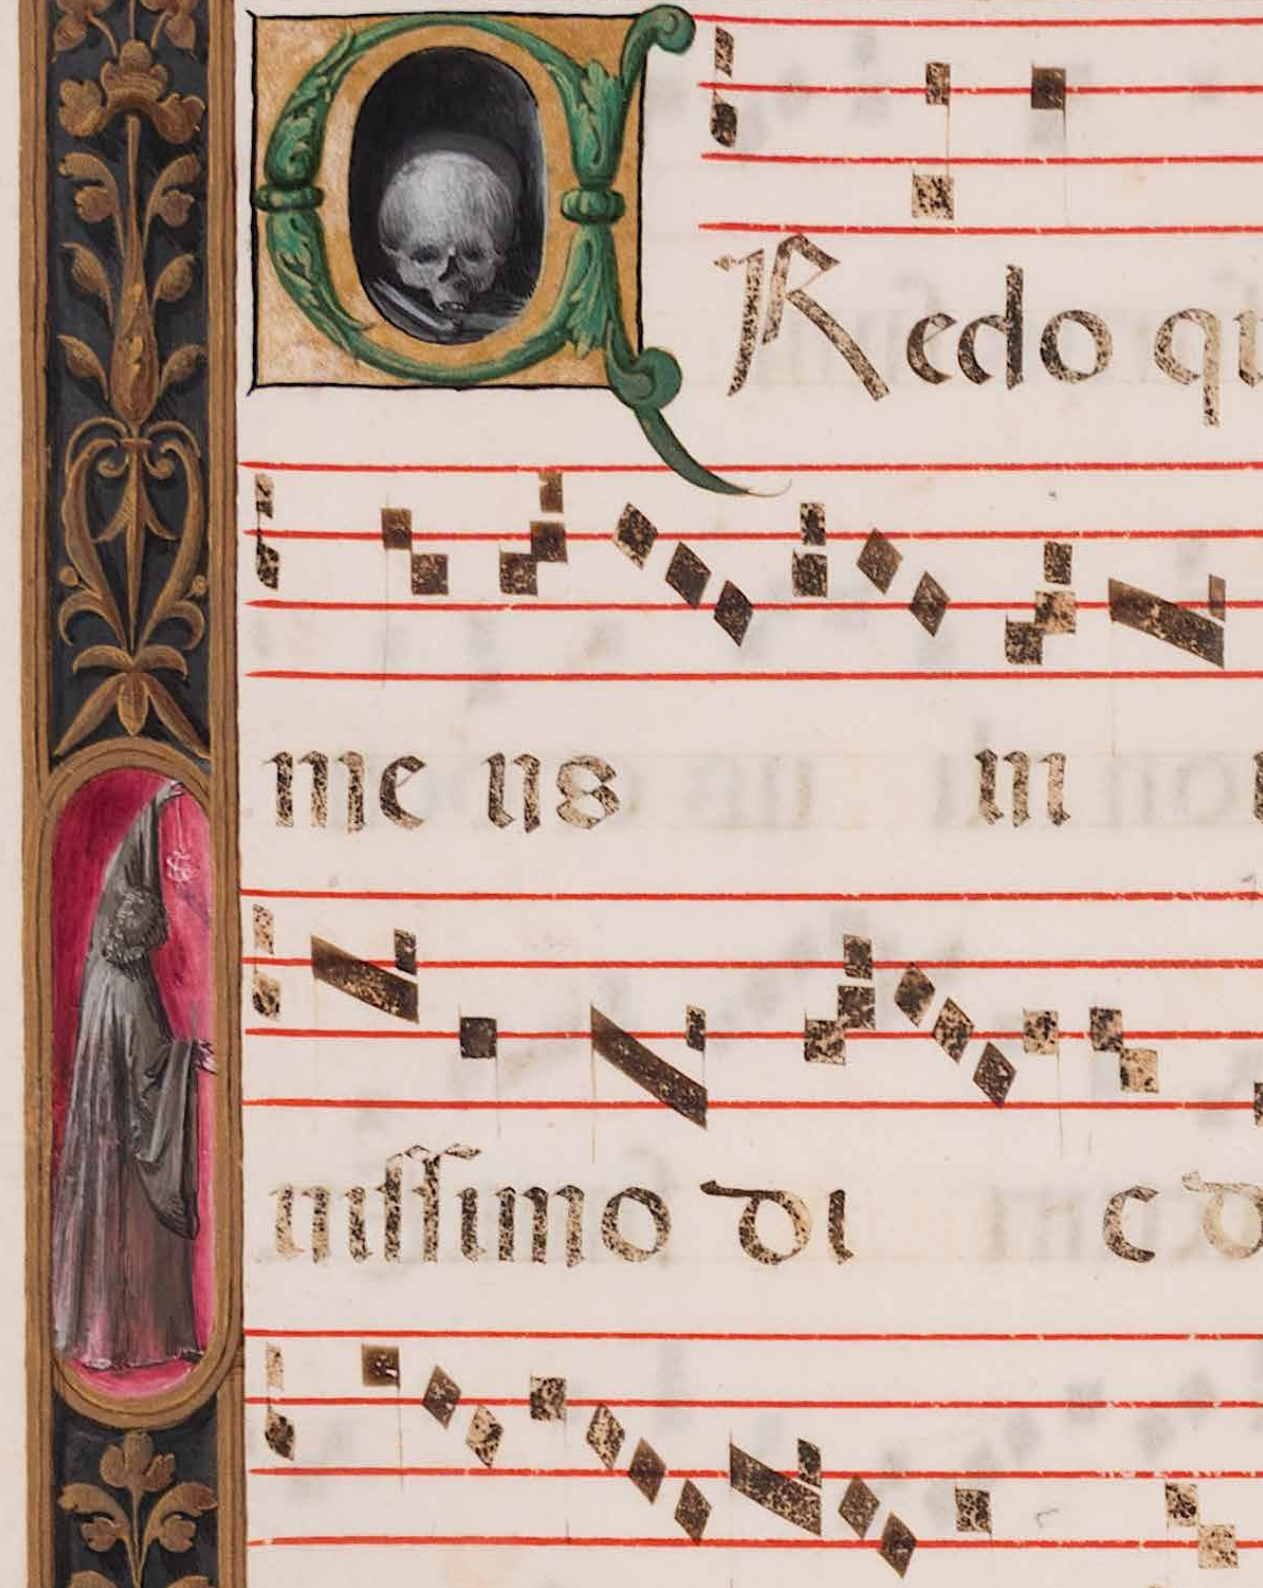 CRedo qu
me us in
nissimo di co